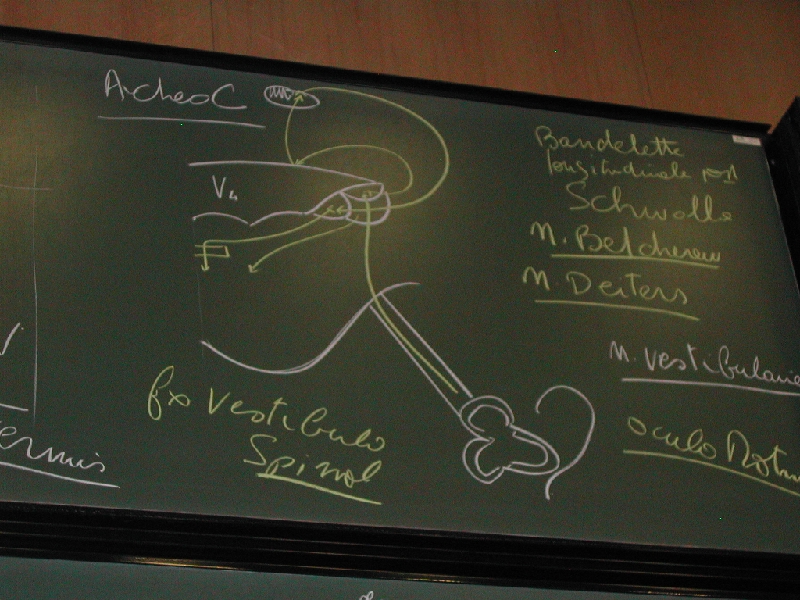 ArcheoC
V4
Bandelette
longitudinale post
Schwalbe
N. Betcherew
N. Deiters
N. vestibulaire
oculo Motu
fx vestibulo
Spinal
ermis